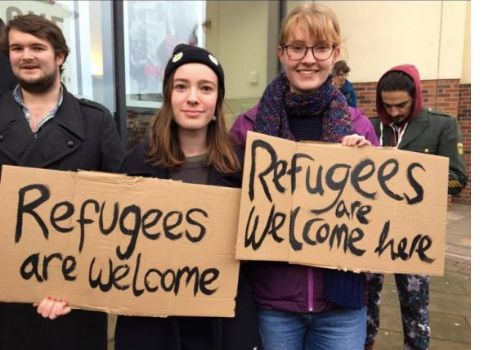 Refugees
are welcome
Refugees
are
welcome here